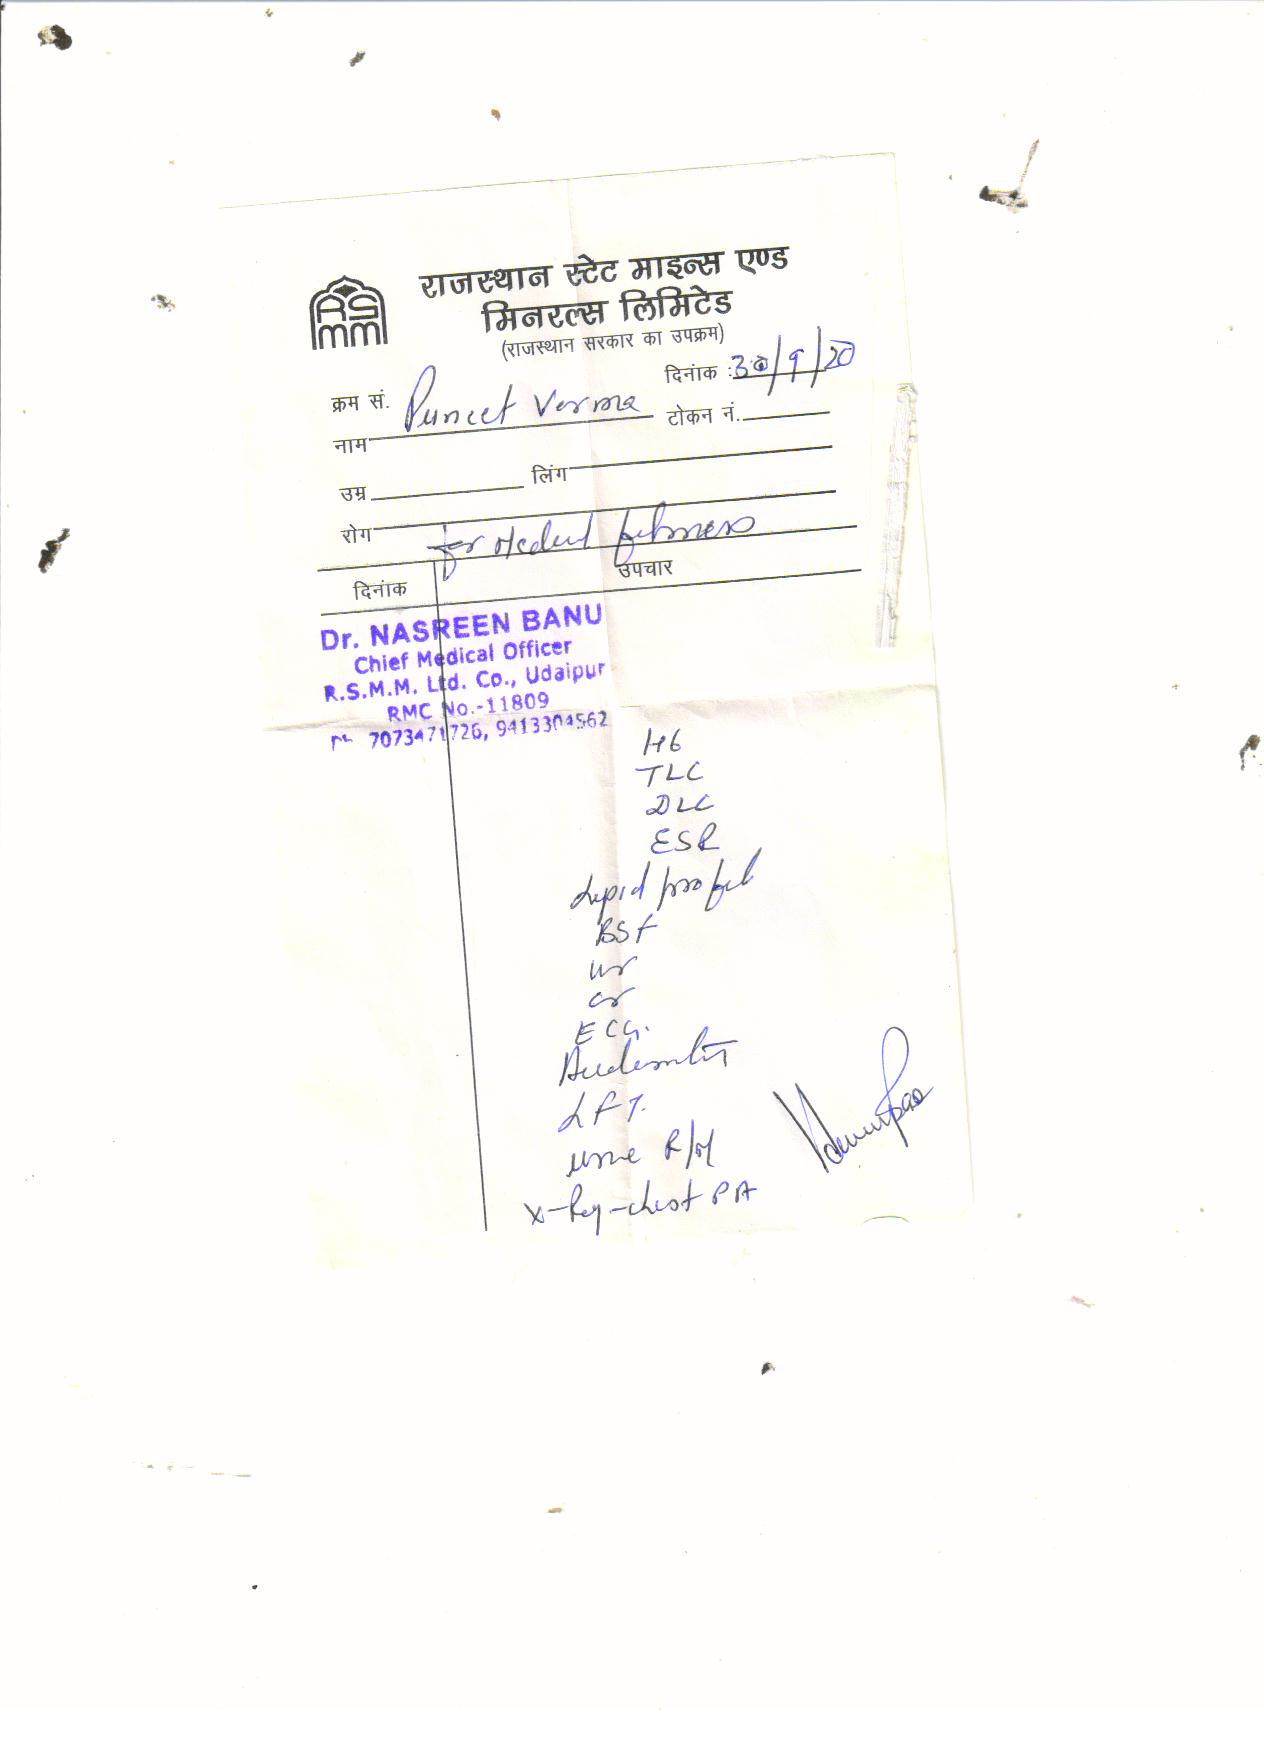 RS
mm
राजस्थान स्टेट माइन्स एण्ड
मिनरल्स लिमिटेड
(राजस्थान सरकार का उपक्रम)
दिनांक : 30/9/20
क्रम सं.
नाम Puneet Verma टोकन नं.
उम्र लिंग
रोग
for Medical fitness
दिनांक उपचार
Dr. NASREEN BANU
Chief Medical Officer
R.S.M.M. Ltd. Co., Udaipur
RMC No.-11809
7073471726, 9413304562
Hb
TLC
DLC
ESR
Lipid profil
BSF
ur
cr
ECG.
LFT.
urine R/M
X-Ray-chest PA